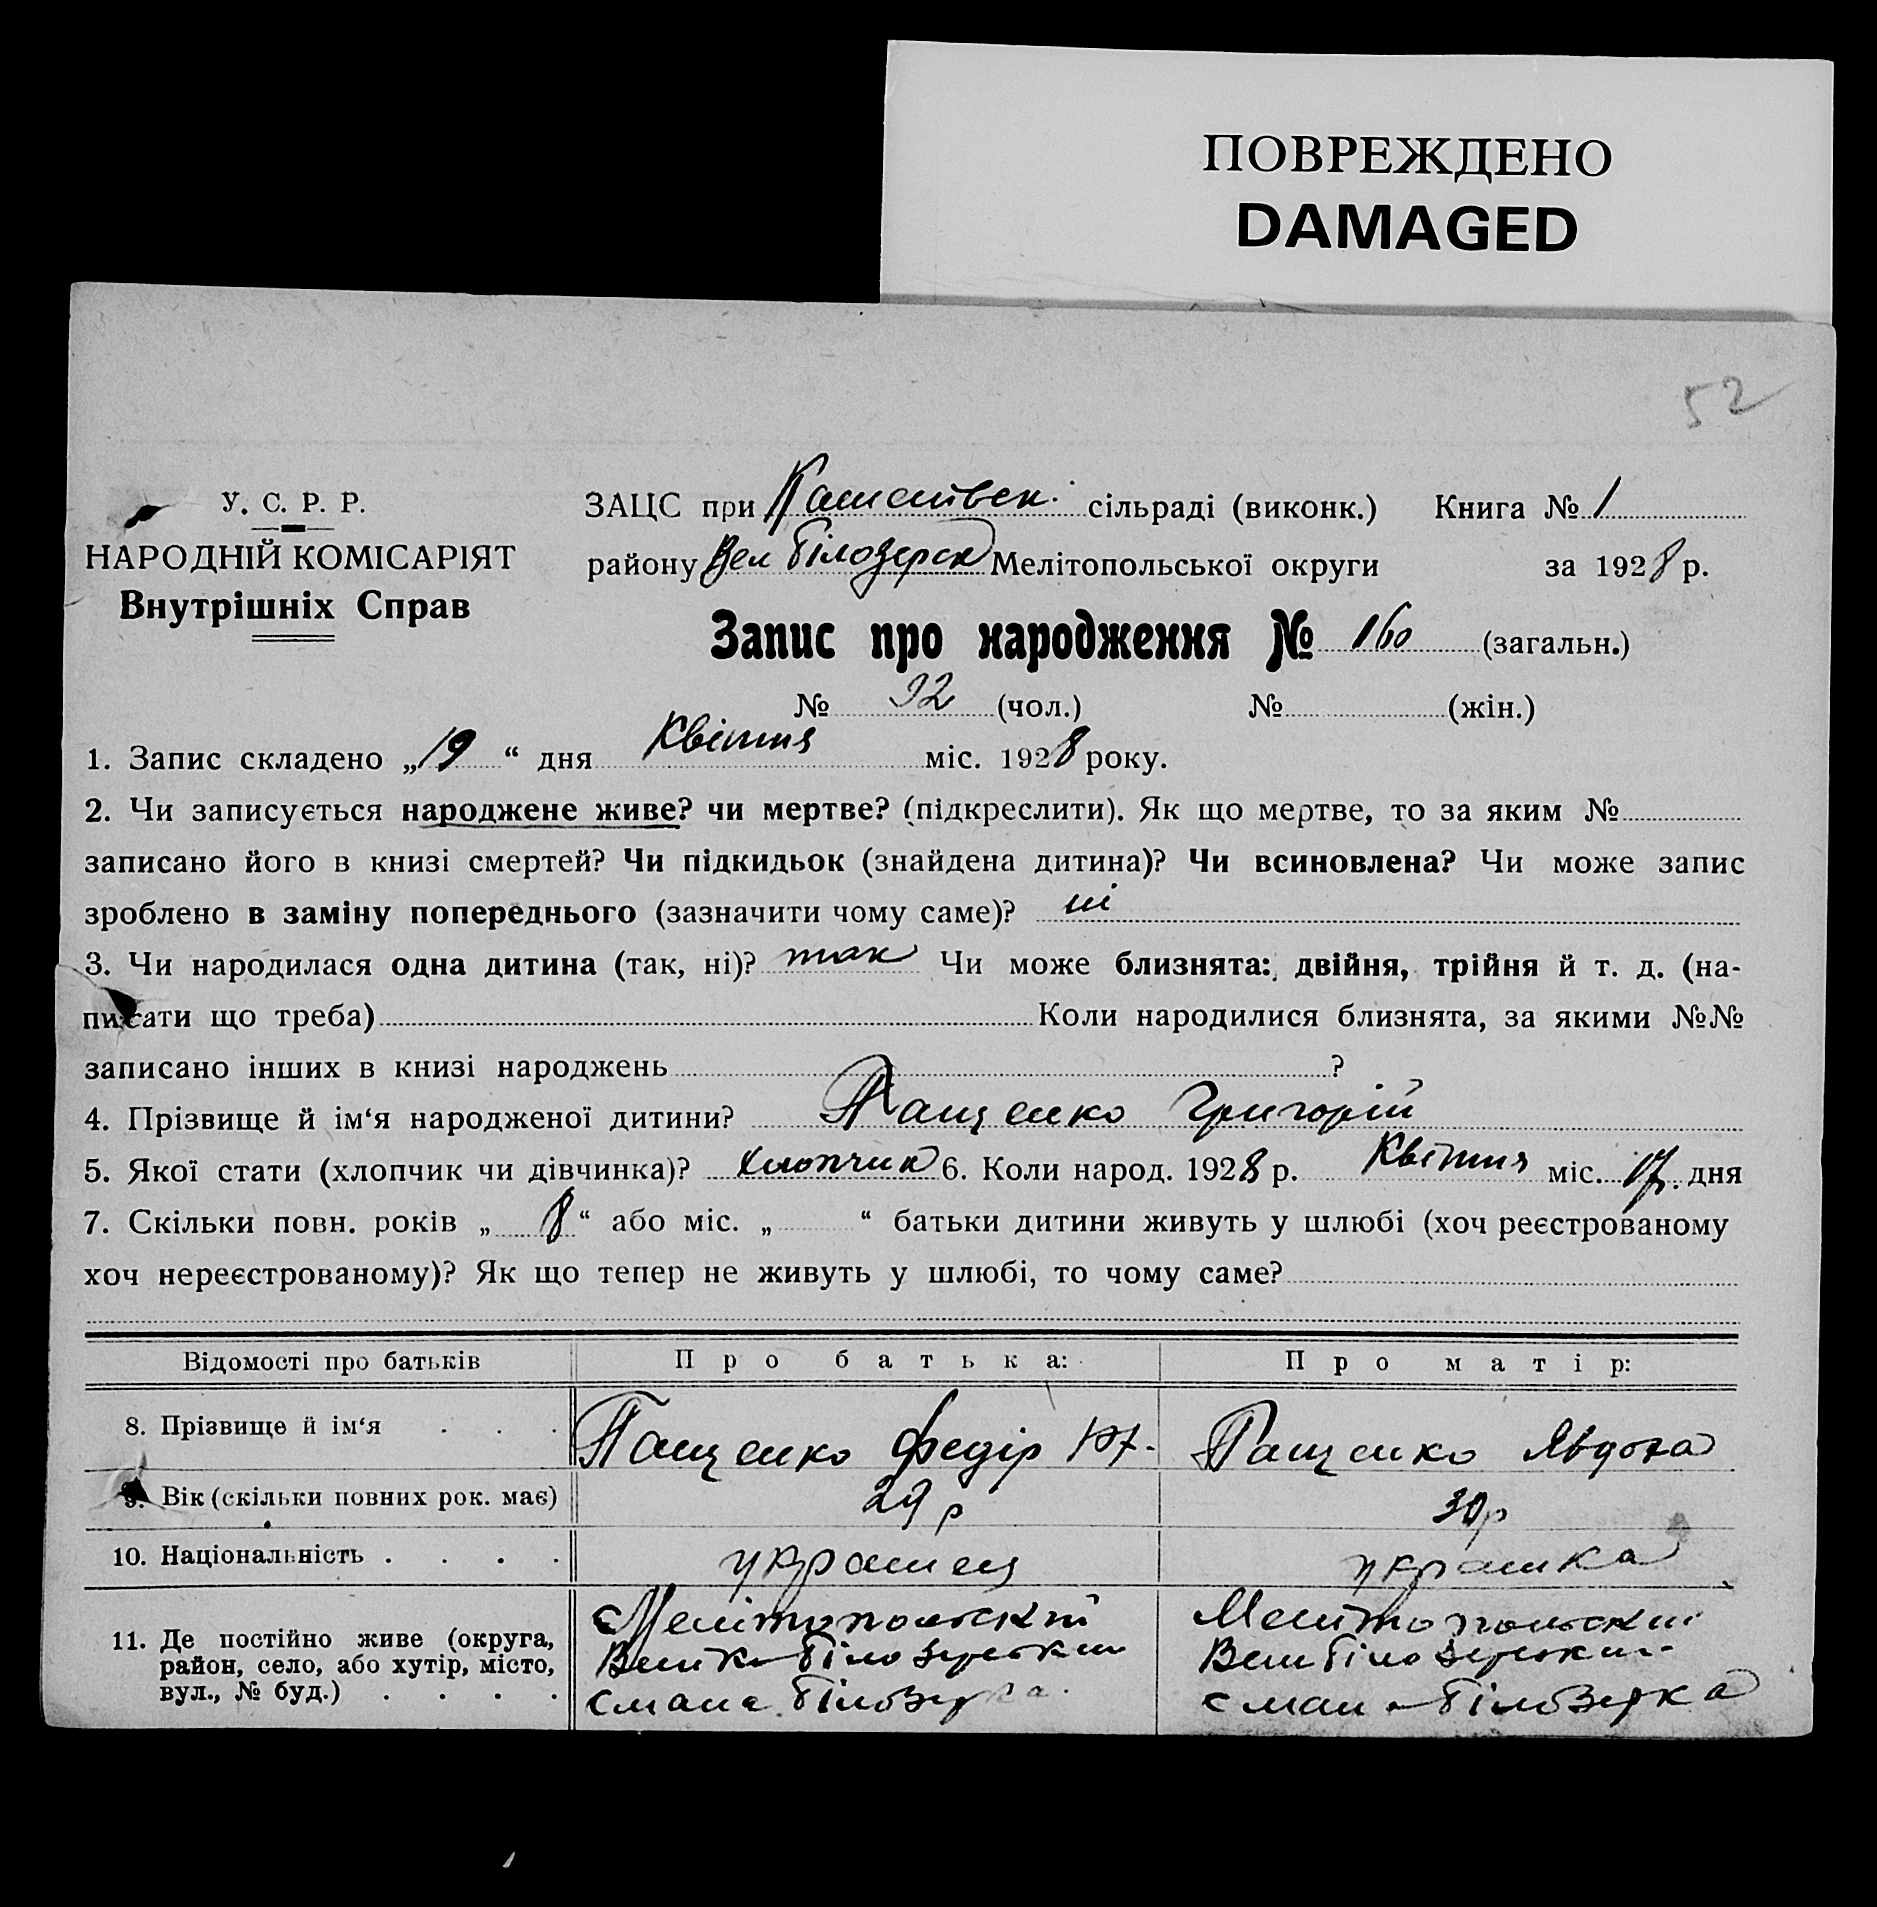 ПОВРЕЖДЕНО
DAMAGED
52
У. С. Р. Р.
НАРОДНІЙ КОМІСАРІЯТ
Внутрішніх Справ
ЗАЦС при сільраді (виконк.) Книга № 1
району Вел Білозерск Мелітопольської округи за 1928 р.
Запис про народження № 160 (загальн.)
№ 92 (чол.) № (жін.)
1. Запис складено „19“ дня Квітня міс. 1928 року.
2. Чи записується народжене живе? чи мертве? (підкреслити). Як що мертве, то за яким №
записано його в книзі смертей? Чи підкидьок (знайдена дитина)? Чи всиновлена? Чи може запис
зроблено в заміну попереднього (зазначити чому саме)? ні
3. Чи народилася одна дитина (так, ні)? так Чи може близнята: двійня, трійня й т. д. (на-
писати що треба) Коли народилися близнята, за якими №№
записано інших в книзі народжень ?
4. Прізвище й ім‘я народженої дитини? Пащенко Григорій
5. Якої стати (хлопчик чи дівчинка)? хлопчик 6. Коли народ. 1928 р. Квітня міс. 17. дня
7. Скільки повн. років „8“ або міс. „ “ батьки дитини живуть у шлюбі (хоч реєстрованому
хоч нереєстрованому)? Як що тепер не живуть у шлюбі, то чому саме?
Відомості про батьків Про батька: Про матір:
8. Прізвище й ім‘я . . . Пащенко Федір Пащенко Явдоха
9. Вік (скільки повних рок. має) 29 р 30 р
10. Національність . . . . українец українка
11. Де постійно живе (округа,
район, село, або хутір, місто,
вул., № буд.) . . . .
Мелітопольский
Велико-Білозерський
Білозерка
Мелітопольский
Вел Білозерський
Білозерка